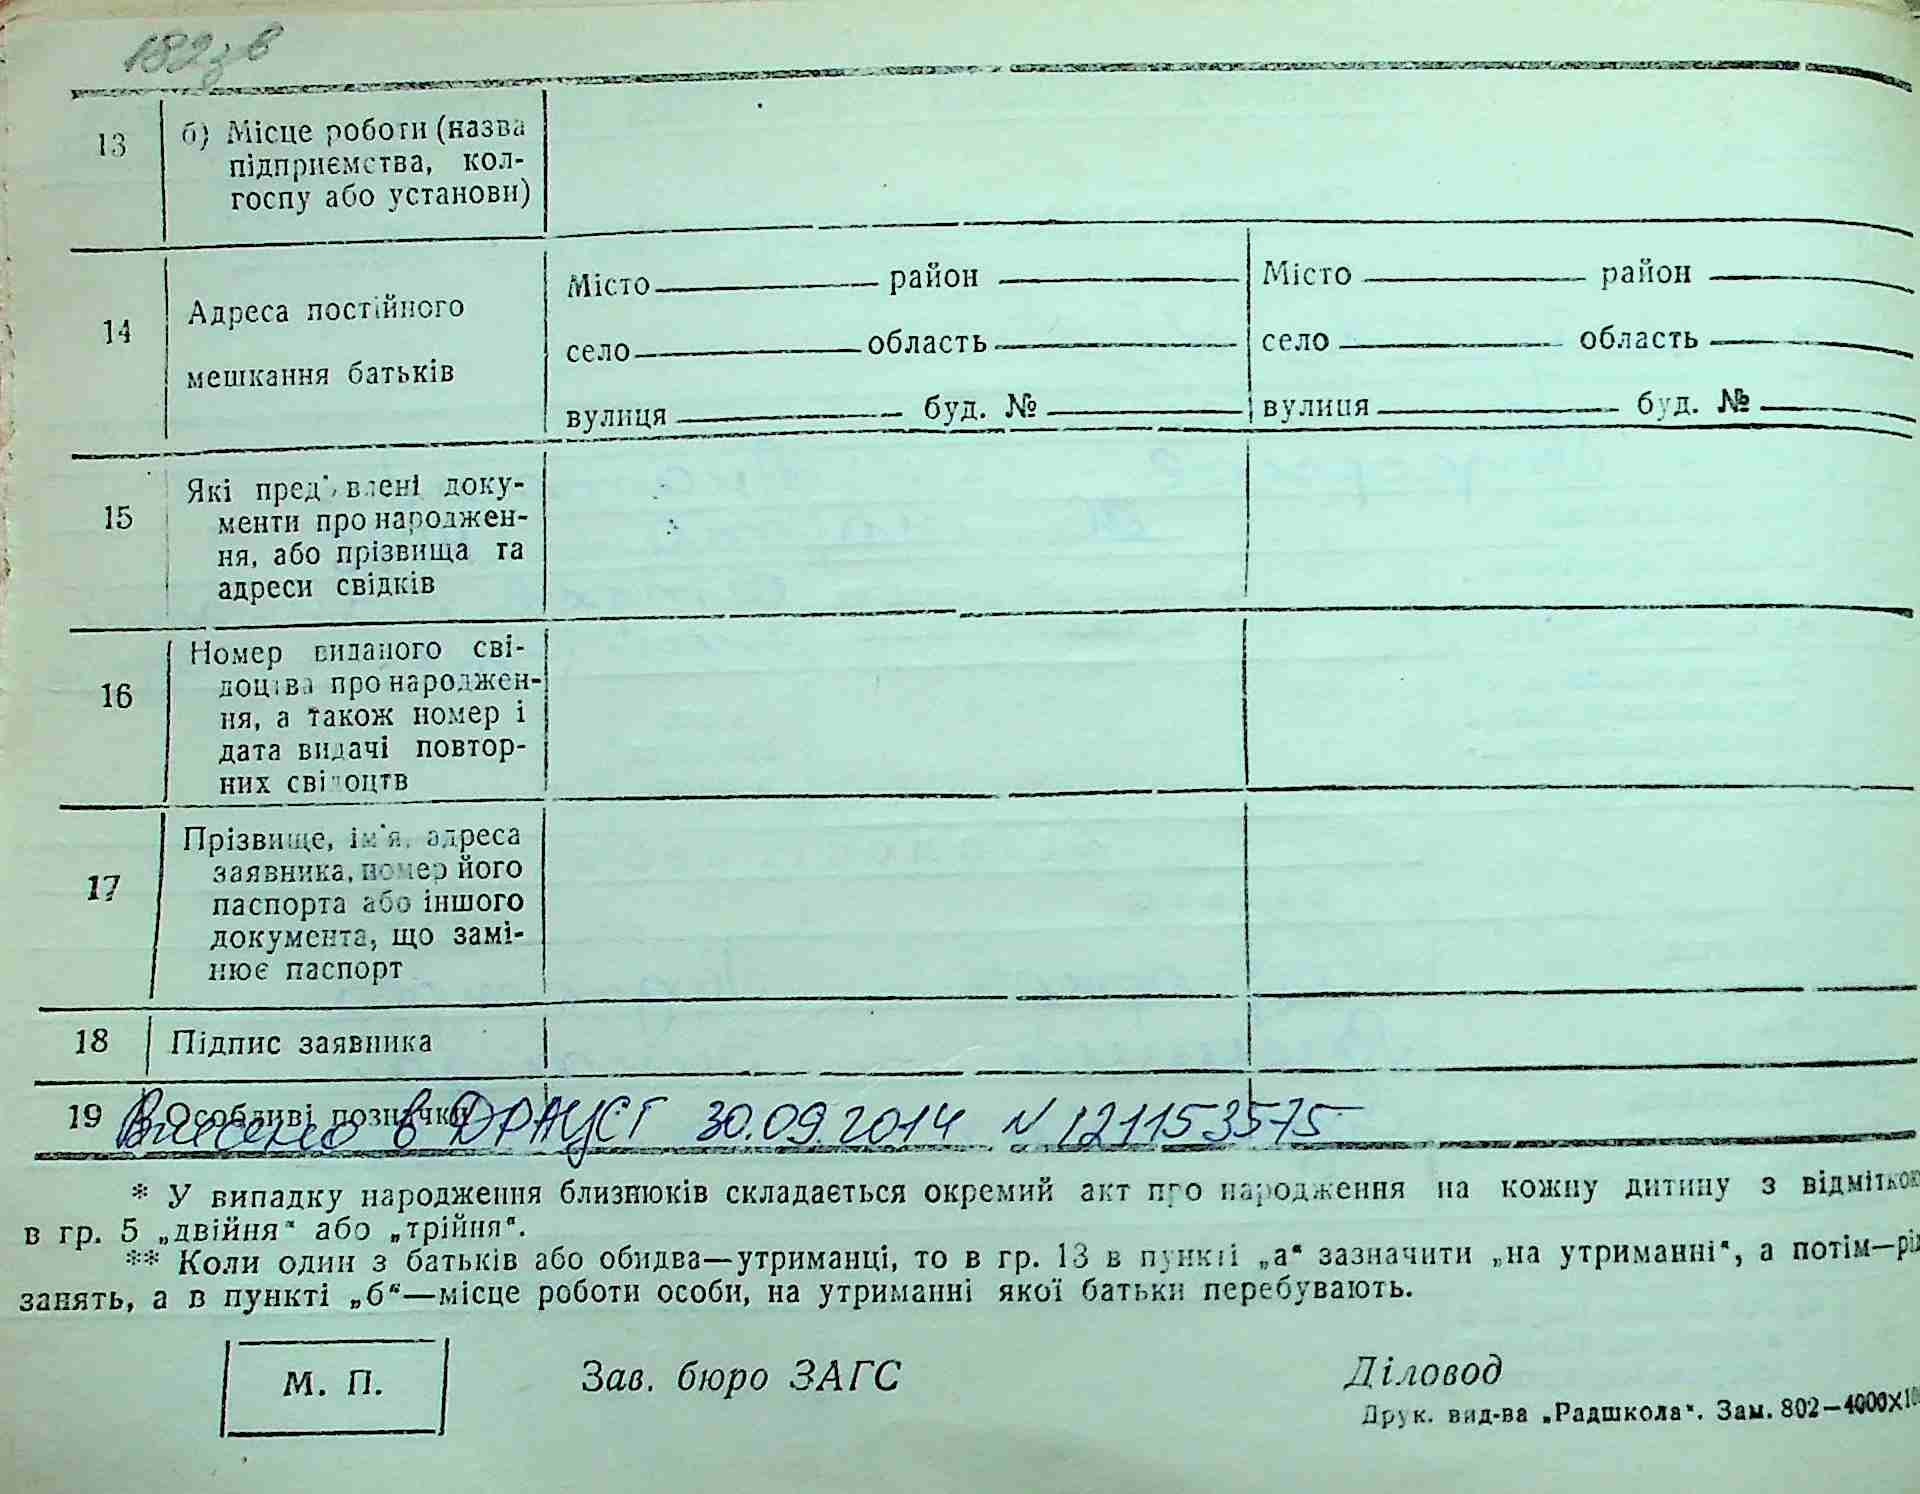 182зв
13
б) Місце роботи (назва
підприємства, кол-
госпу або установи)
14
Адреса постійного
мешкання батьків
Місто район
село область
вулиця буд. №
Місто район
село область
вулиця буд. №
15
Які пред'явлені доку-
менти про народжен-
ня, або прізвища та
адреси свідків
16
Номер виданого сві-
доцтва про народжен-
ня, а також номер і
дата видачі повтор-
них свідоцтв
17
Прізвище, ім'я, адреса
заявника, номер його
паспорта або іншого
документа, що замі-
нює паспорт
18
Підпис заявника
19
Особливі позначки
Внесено в ДРАЦСГ 30.09.2014 N 121153575
* У випадку народження близнюків складається окремий акт про народження на кожну дитину з відміткою
в гр. 5 „двійня“ або „трійня“.
** Коли один з батьків або обидва—утриманці, то в гр. 13 в пункті „а“ зазначити „на утриманні“, а потім—рід
занять, а в пункті „б“—місце роботи особи, на утриманні якої батьки перебувають.
М. П.
Зав. бюро ЗАГС
Діловод
Друк. вид-ва „Радшкола“. Зам. 802—4000×